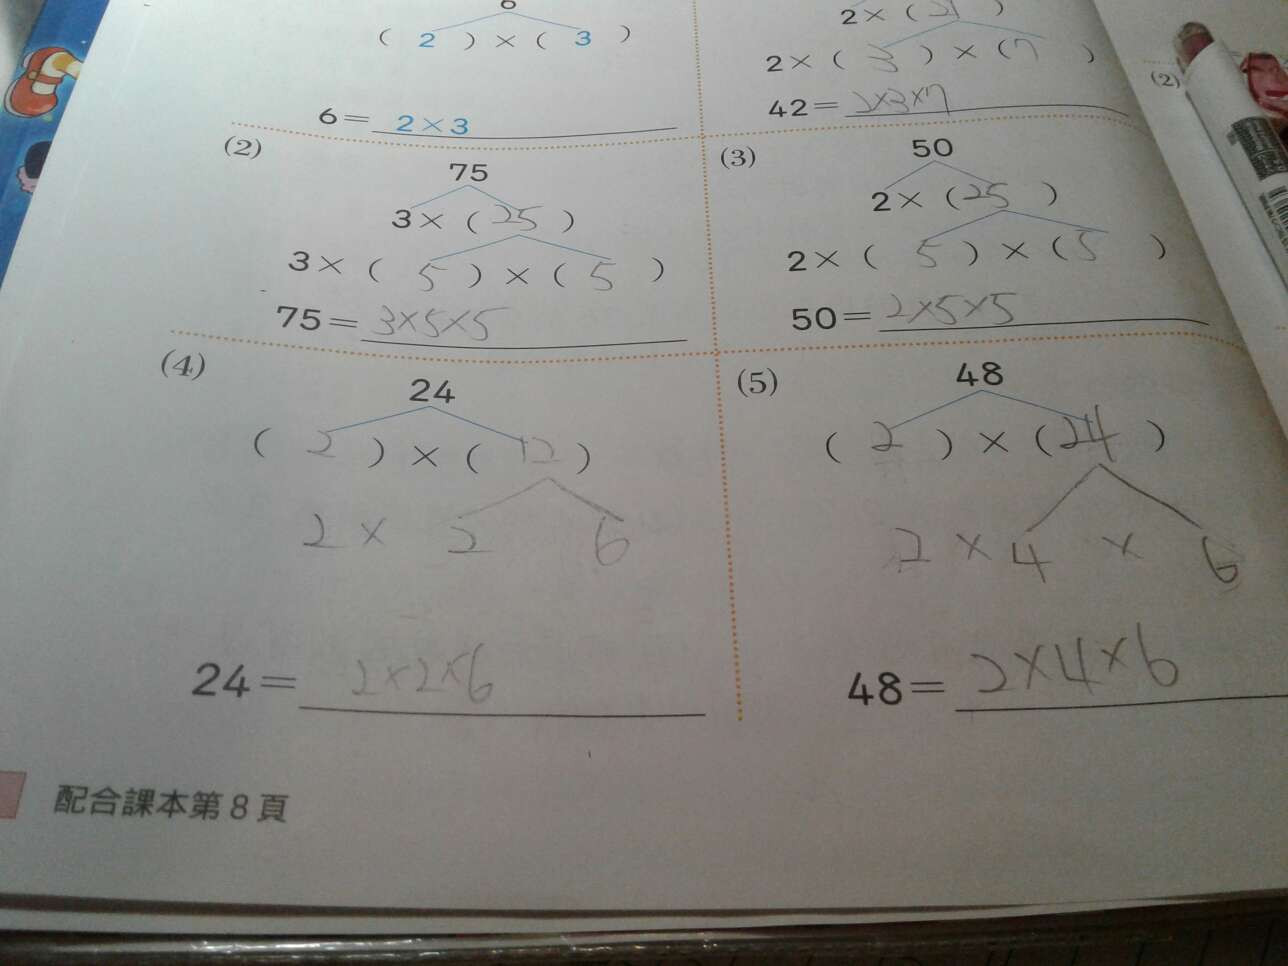 6
( 2 ) × ( 3 )
6= 2×3
2× ( 21 )
2× ( 3 ) × ( 7 )
42= 2×3×7
(2)
75
3× ( 25 )
3× ( 5 ) × ( 5 )
75= 3×5×5
(3)
50
2× ( 25 )
2× ( 5 ) × ( 5 )
50= 2×5×5
(4)
24
( 2 ) × ( 12 )
2 × 2 6
24= 2×2×6
(5)
48
( 2 ) × ( 24 )
2 × 4 × 6
48= 2×4×6
配合課本第8頁
(2)